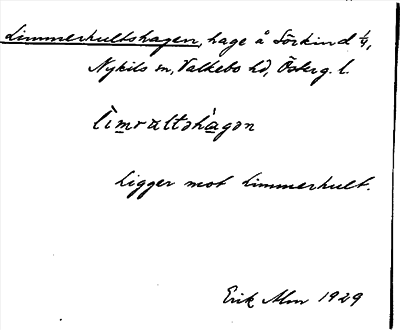 Limmerhultshagen, hage å Sörkind 1/4,
Nykils sn, Valkebo hd, Österg. l.
Ligger mot Limmerhult.
Erik Alm 1929